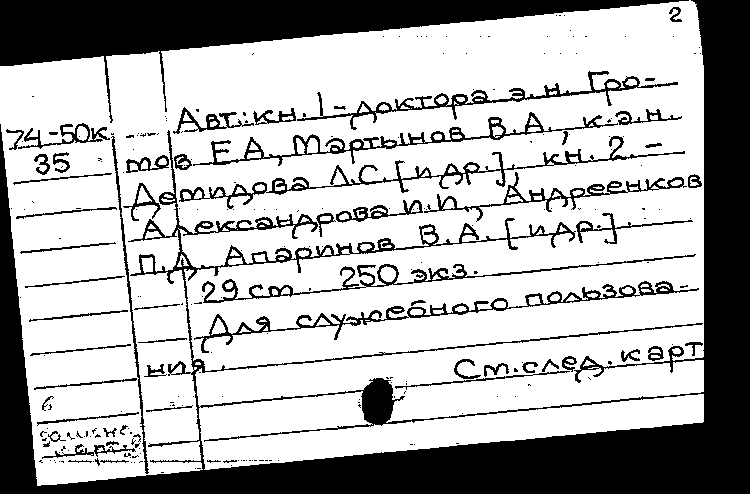 2
Авт.: кн. 1 - доктора э.н. Гро-
74-50к
35
тов Е.А., Мартынов В.А., к.э.н.
Демидова Л.С. [и др.], кн. 2. -
Александрова И.П., Андреенков
П.Д., Апаринов В.А. [и др.].
29 cm. 250 экз.
Для служебного пользова-
ния.
См. след. карт
6